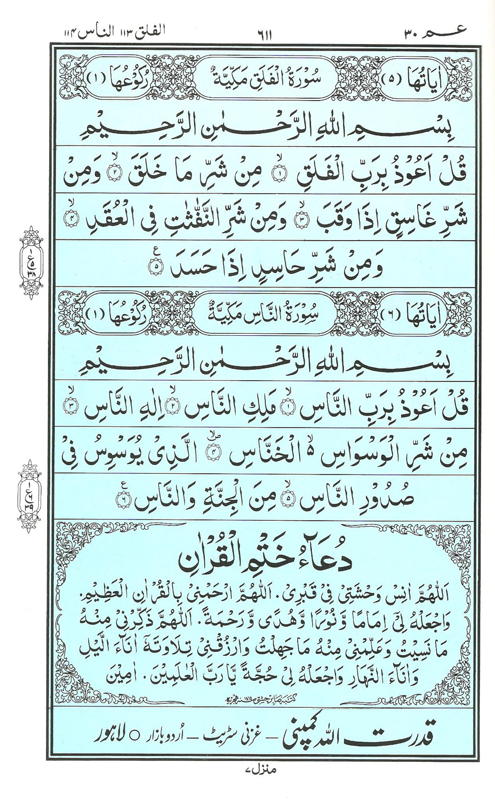 عم ۳۰ ٦١١ الفلق ۱۱۳ الناس ۱۱۴
اٰيَاتُهَا (۵) سُوْرَةُ الْفَلَقِ مَكِّيَّةٌ رُكُوْعُهَا (۱)
بِسْمِ اللّٰهِ الرَّحْمٰنِ الرَّحِيْمِ
قُلْ اَعُوْذُ بِرَبِّ الْفَلَقِ ۙ﴿۱﴾ مِنْ شَرِّ مَا خَلَقَ ۙ﴿۲﴾ وَمِنْ
شَرِّ غَاسِقٍ اِذَا وَقَبَ ۙ﴿۳﴾ وَمِنْ شَرِّ النَّفّٰثٰتِ فِى الْعُقَدِ ۙ﴿۴﴾
وَمِنْ شَرِّ حَاسِدٍ اِذَا حَسَدَ ﴿۵﴾ ع
اٰيَاتُهَا (۶) سُوْرَةُ النَّاسِ مَكِّيَّةٌ رُكُوْعُهَا (۱)
بِسْمِ اللّٰهِ الرَّحْمٰنِ الرَّحِيْمِ
قُلْ اَعُوْذُ بِرَبِّ النَّاسِ ۙ﴿۱﴾ مَلِكِ النَّاسِ ۙ﴿۲﴾ اِلٰهِ النَّاسِ ۙ﴿۳﴾
مِنْ شَرِّ الْوَسْوَاسِ ۵ۙ الْخَنَّاسِ ۪ۙ﴿۴﴾ الَّذِىْ يُوَسْوِسُ فِىْ
صُدُوْرِ النَّاسِ ۙ﴿۵﴾ مِنَ الْجِنَّةِ وَالنَّاسِ ﴿۶﴾ ع
دُعَآءُ خَتْمِ الْقُرْاٰنِ
اَللّٰهُمَّ اٰنِسْ وَحْشَتِىْ فِىْ قَبْرِىْ. اَللّٰهُمَّ ارْحَمْنِىْ بِالْقُرْاٰنِ الْعَظِيْمِ.
وَاجْعَلْهُ لِىْ اِمَامًا وَّنُوْرًا وَّهُدًى وَّرَحْمَةً. اَللّٰهُمَّ ذَكِّرْنِىْ مِنْهُ
مَا نَسِيْتُ وَعَلِّمْنِىْ مِنْهُ مَا جَهِلْتُ وَارْزُقْنِىْ تِلَاوَتَهٗ اٰنَآءَ الَّيْلِ
وَاٰنَآءَ النَّهَارِ وَاجْعَلْهُ لِىْ حُجَّةً يَّا رَبَّ الْعٰلَمِيْنَ. اٰمِيْنَ
قدرت اللہ کمپنی – غزنی سٹریٹ – اُردو بازار ○ لاہور
منزل ۷